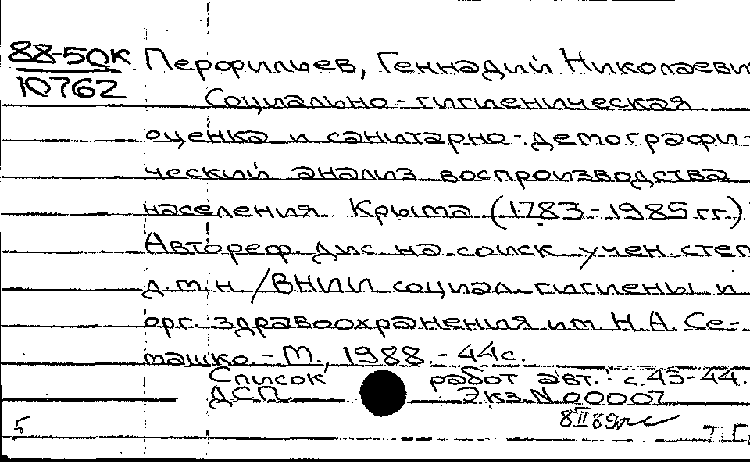 88-50к
10762
Перфильев, Геннадий Николаеви
Социально-гигиеническая
оценка и санитарно-демографи-
ческий анализ воспроизводства
населения Крыма (1783-1985 гг.)
Автореф. дис. на соиск. учен. степ
д.м.н. /ВНИИ социал. гигиены и
орг. здравоохранения им. Н.А. Се-
машко. - М., 1988. - 44с.
Список работ авт.: с.43-44.
ДСП Экз. N 00007
8 II 89
5 т. Г